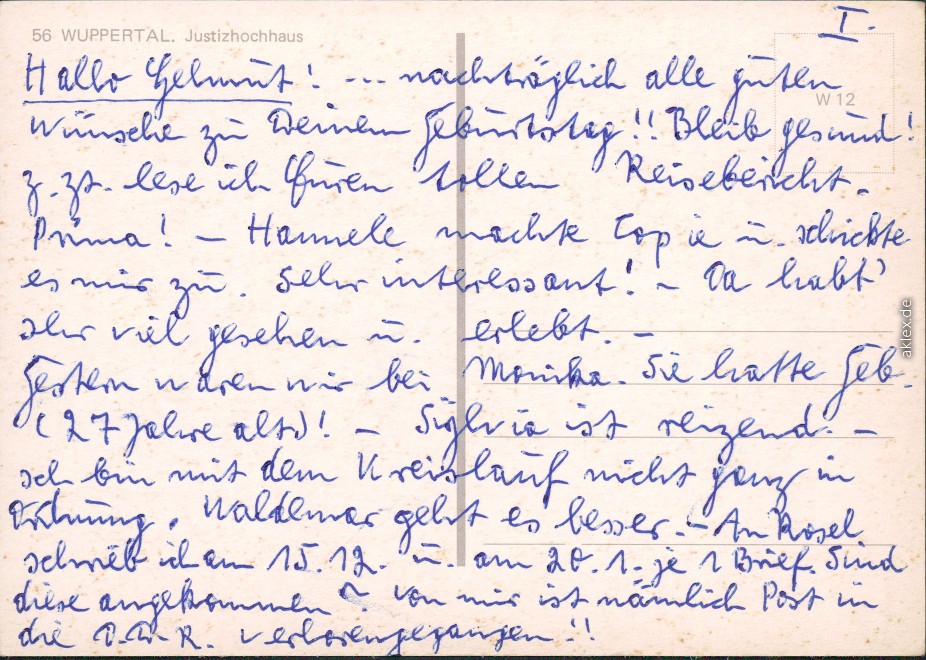 I.
56 WUPPERTAL. Justizhochhaus
Hallo Helmut! ... nachträglich alle guten
W 12
Wünsche zu Deinem Geburtstag!! Bleib gesund!
z. Zt. lese ich Euren tollen Reisebericht.
Prima! – Hannele machte Copie u. schickte
es mir zu. Sehr interessant! – Da habt
Ihr viel gesehen u. erlebt. –
Gestern waren wir bei Monika. Sie hatte Geb.
(27 Jahre alt)! – Sylvia ist reizend. –
Ich bin mit dem Kreislauf nicht ganz in
Ordnung. Waldemar geht es besser. – An Rosel
schrieb ich am 15.12. u. am 20.1. je 1 Brief. Sind
diese angekommen? Von mir ist nämlich Post in
die D.D.R. verlorengegangen!!
aklex.de